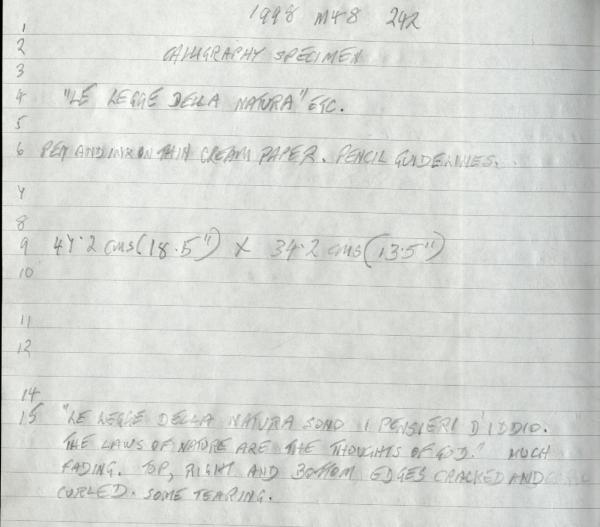 1998 M48 242
1
2 CALLIGRAPHY SPECIMEN
3
4 "LE LEGGE DELLA NATURA" ETC.
5
6 PEN AND INK ON THIN CREAM PAPER. PENCIL GUIDELINES.
7
8
9 47.2 cms (18.5") X 34.2 cms (13.5")
10
11
12
14
15 "LE LEGGE DELLA NATURA SONO I PENSIERI D'IDDIO.
THE LAWS OF NATURE ARE THE THOUGHTS OF GOD." MUCH
FADING. TOP, RIGHT AND BOTTOM EDGES CRACKED AND
CURLED. SOME TEARING.